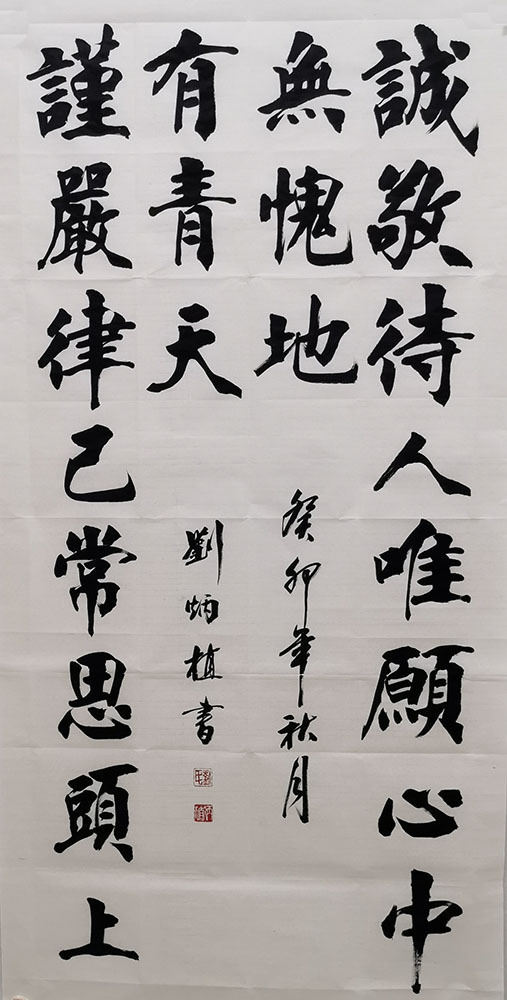 誠敬待人唯願心中
無愧地
謹嚴律己常思頭上
有青天
癸卯年秋月
劉炳植書